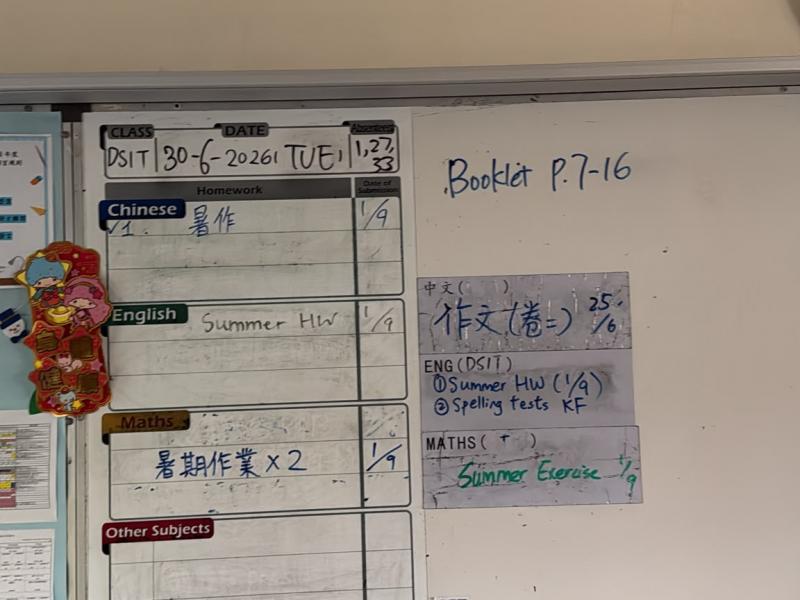 CLASS DATE Absentees
DSIT 30-6-2026 TUE 1,27,
33
Homework Date of Submission
Chinese
√1. 暑作 1/9
English Summer HW 1/9
Maths
暑期作業×2 1/9
Other Subjects
Booklet P.7-16
中文( )
作文(卷二) 25/6
ENG(DSIT)
①Summer HW (1/9)
②Spelling tests KF
MATHS( + )
Summer Exercise 1/9